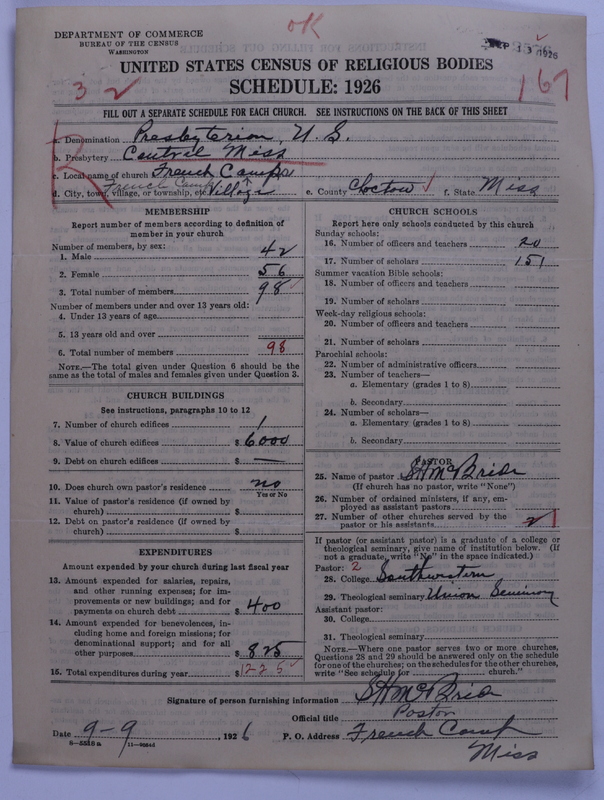 OK
DEPARTMENT OF COMMERCE
BUREAU OF THE CENSUS
WASHINGTON
SEP 13 1926
UNITED STATES CENSUS OF RELIGIOUS BODIES
SCHEDULE: 1926
3 2
167
FILL OUT A SEPARATE SCHEDULE FOR EACH CHURCH. SEE INSTRUCTIONS ON THE BACK OF THIS SHEET
R
a. Denomination Presbyterian, U. S.
b. Presbytery Central Miss
c. Local name of church French Camp
French Camp
d. City, town, village, or township, etc. Village e. County Choctaw f. State Miss
MEMBERSHIP
Report number of members according to definition of
member in your church
Number of members, by sex:
1. Male 42
2. Female 56
3. Total number of members 98
Number of members under and over 13 years old:
4. Under 13 years of age
5. 13 years old and over
6. Total number of members 98
NOTE.—The total given under Question 6 should be the
same as the total of males and females given under Question 3.
CHURCH BUILDINGS
See instructions, paragraphs 10 to 12
7. Number of church edifices 1
8. Value of church edifices $ 6000
9. Debt on church edifices $ —
10. Does church own pastor's residence no
Yes or No
11. Value of pastor's residence (if owned by
church) $
12. Debt on pastor's residence (if owned by
church) $
EXPENDITURES
Amount expended by your church during last fiscal year
13. Amount expended for salaries, repairs,
and other running expenses; for im-
provements or new buildings; and for
payments on church debt $ 400
14. Amount expended for benevolences, in-
cluding home and foreign missions; for
denominational support; and for all
other purposes $ 825
15. Total expenditures during year $ 1225
CHURCH SCHOOLS
Report here only schools conducted by this church
Sunday schools:
16. Number of officers and teachers 20
17. Number of scholars 151
Summer vacation Bible schools:
18. Number of officers and teachers
19. Number of scholars
Week-day religious schools:
20. Number of officers and teachers
21. Number of scholars
Parochial schools:
22. Number of administrative officers
23. Number of teachers—
a. Elementary (grades 1 to 8)
b. Secondary
24. Number of scholars—
a. Elementary (grades 1 to 8)
b. Secondary
PASTOR
25. Name of pastor S H McBride
(If church has no pastor, write "None")
26. Number of ordained ministers, if any, em-
ployed as assistant pastors
27. Number of other churches served by the
pastor or his assistants 2
If pastor (or assistant pastor) is a graduate of a college or
theological seminary, give name of institution below. (If
not a graduate, write "No" in the space indicated.)
Pastor: 2
28. College Southwestern
29. Theological seminary Union Seminary
Assistant pastor:
30. College
31. Theological seminary
NOTE.—Where one pastor serves two or more churches,
Questions 28 and 29 should be answered only on the schedule
for one of the churches; on the schedules for the other churches,
write "See schedule for church."
Signature of person furnishing information S H McBride
Official title Pastor
Date 9-9, 1926 P. O. Address French Camp
Miss